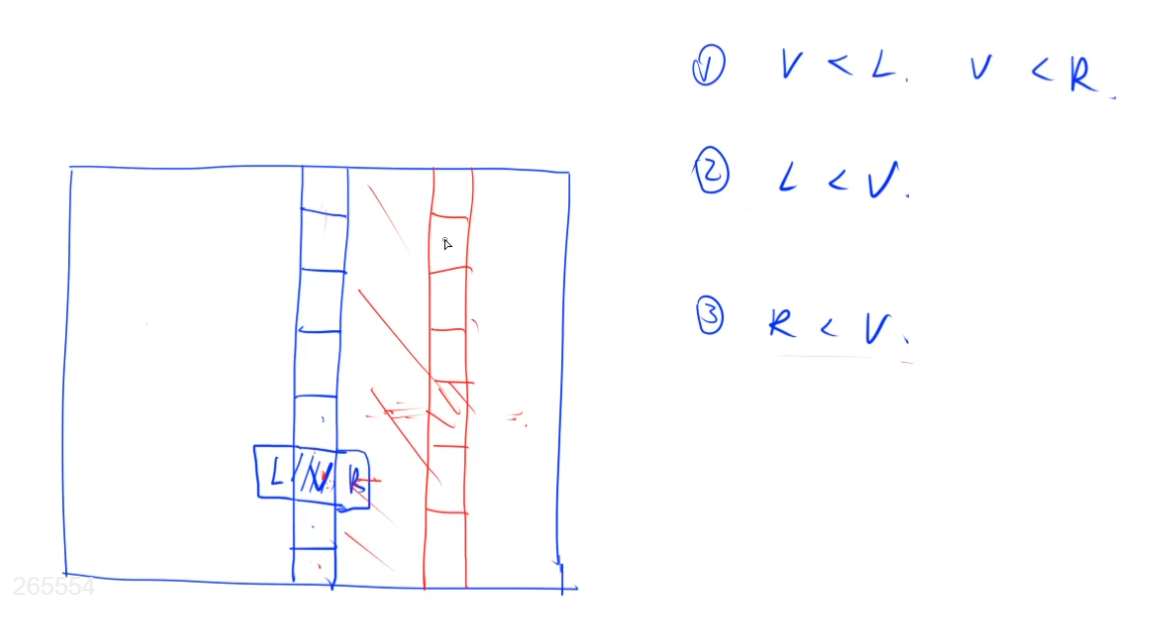 ① V < L. V < R.
② L < V.
③ R < V.
L V R
265554